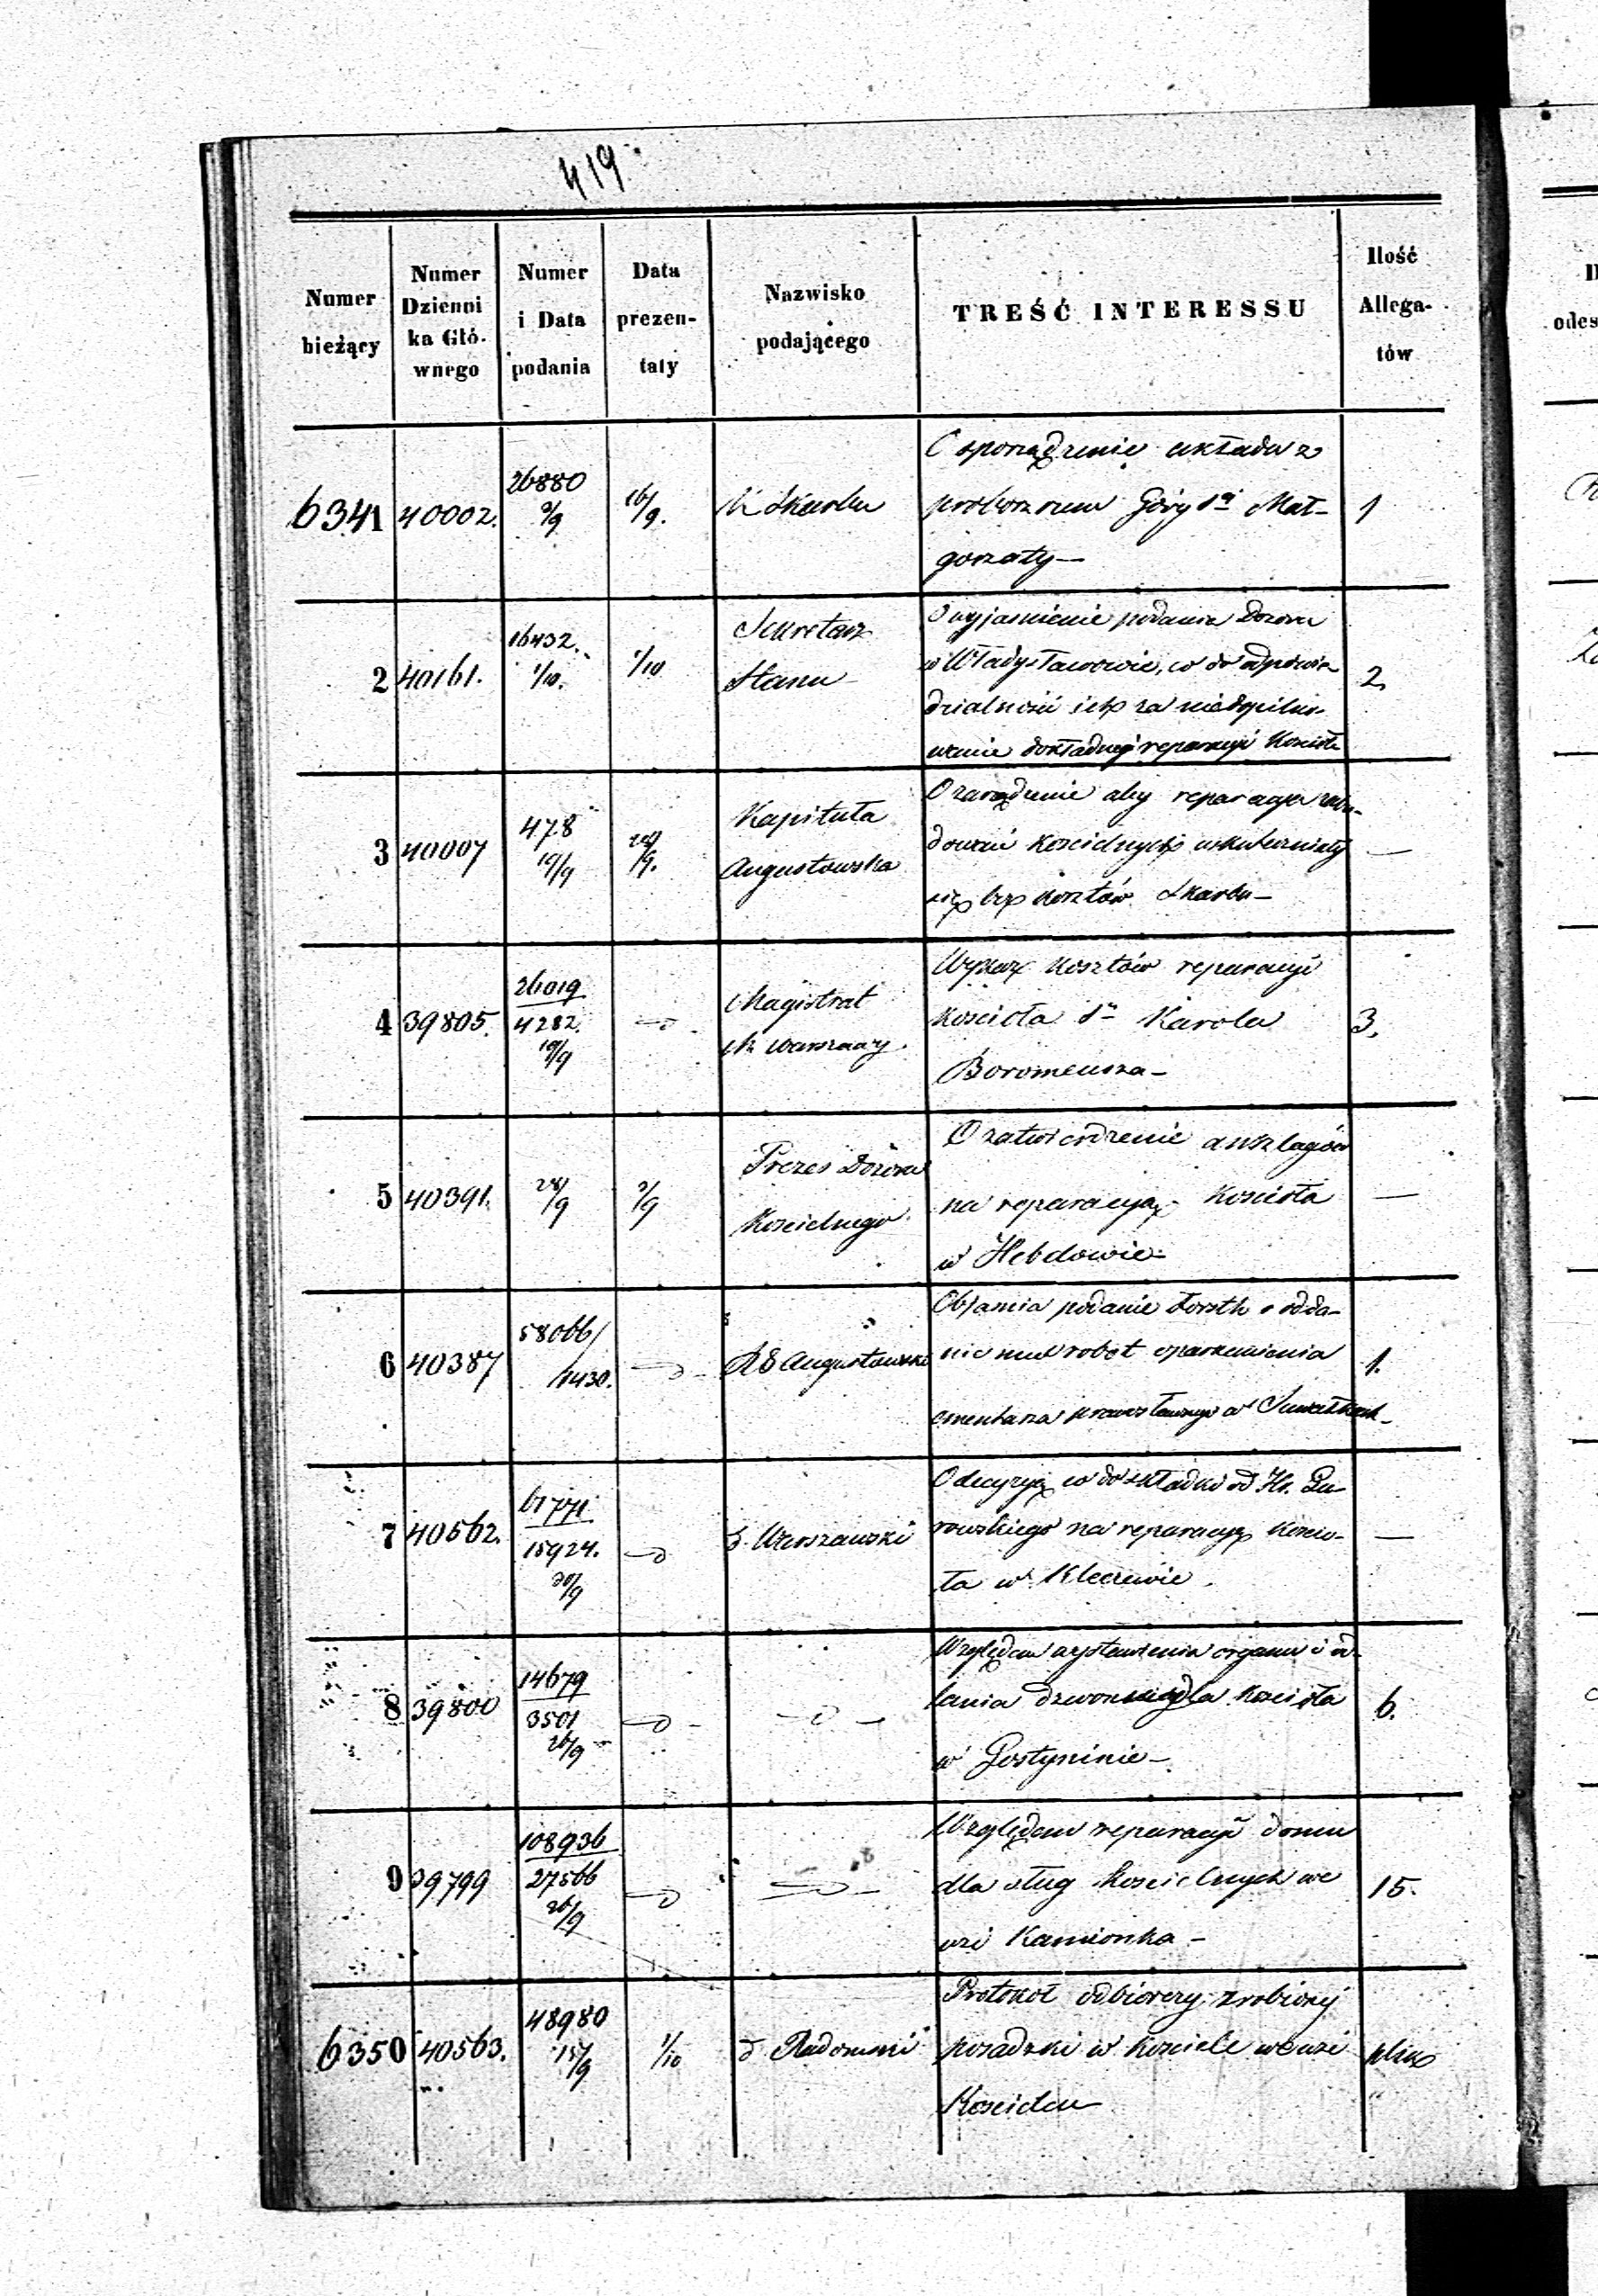 419.
Numer bieżący
Numer Dzienni ka Głó- wnego
Numer i Data podania
Data prezen- taty
Nazwisko podającego
TREŚĆ INTERESSU
Ilość Allega- tów
6341 40002. 26880 9/9 16/9. K Skarbu
O sporządzenie układu z
proboszczem Góry Sej Mał-
gorzaty —
1
2 40161. 16432. 1/10. 1/10
Sekretarz
Stanu
O wyjaśnienie podania Dozoru
w Władysławowie, co do odpowie
dzialności ich za niedopilno-
wanie dokładnej reparacyi Kościoła
2
3 40007 478 19/9 24/9.
Kapituła
Augustowska
O zarządzenie aby reparacya zabu-
dowań kościelnych uskuteczniały
się bez kosztów Skarbu —
—
4 39805. 26019 4282. 19/9
Magistrat
M Warszawy.
Wykaz kosztów reparacyi
Kościoła Sgo Karola
Boromeusza —
3,
5 40391. 28/9 2/9
Prezes Dozoru
Kościelnego.
O zatwierdzenie anszlagów
na reparacyą Kościoła
w Hebdowie —
—
6 40387 58066/ /1430.
RG Augustowski
Objaśnia podanie o odda-
nie mu robót oparkanienia
cmentarza prawosławnego w Suwałkach —
1.
7 40562. 67771 15924. 30/9
G. Warszawski
O decyzyę co do składki od Hr.
na reparacyę Kościo-
ła w Kleczewie.
—
8 39800 14679 3501 26/9
Względem wystawienia organu i od-
lania dzwonu dla kościoła
w Gostyninie —
6.
9 39799 108936 27566 26/9
Względem reparacyi domu
dla sług kościelnych we
wsi Kamionka —
15.
6350 40563. 48980 15/9 1/10
d Radomski
Protokół odbiorczy zrobionej
posadzki w kościele we wsi
Kościelcu
plik